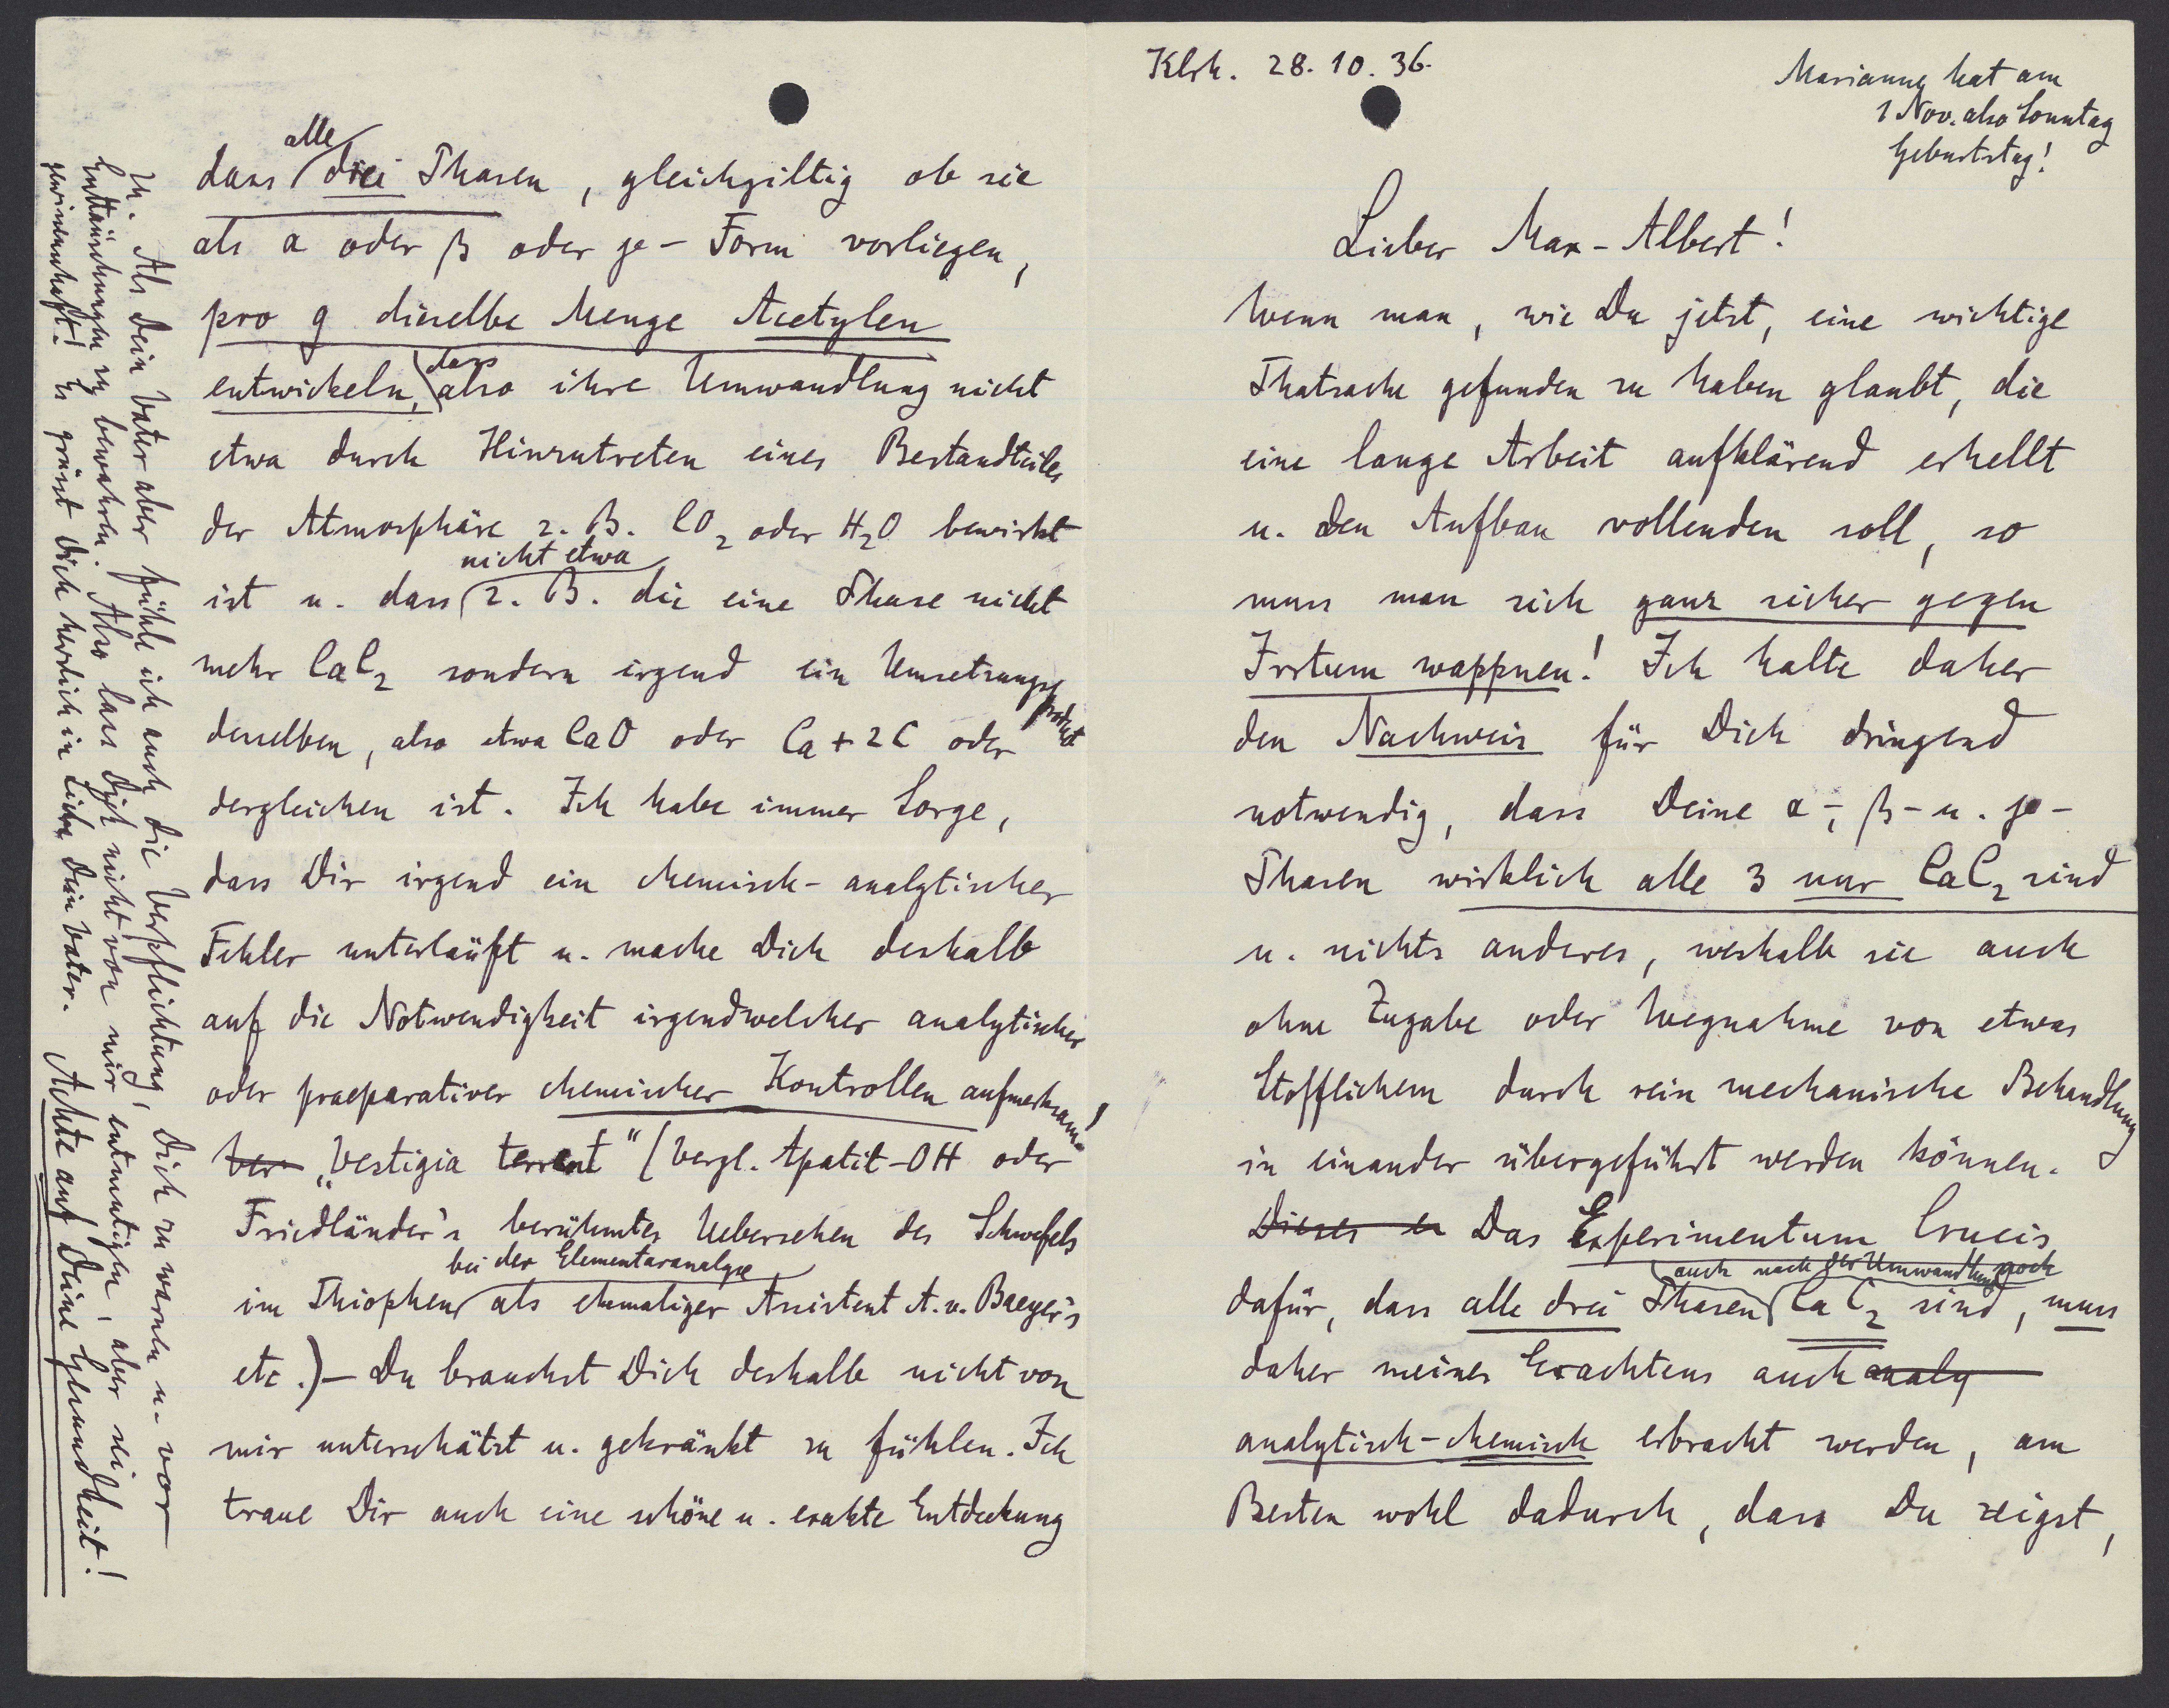 Klrh. 28. 10. 36.
Marianne hat am
1 Nov. also Sonntag
Geburtstag!
Lieber Max-Albert!
Wenn man, wie Du jetzt, eine wichtige
Thatsache gefunden zu haben glaubt, die
eine lange Arbeit aufklärend erhellt
u. den Aufbau vollenden soll, so
muss man sich ganz sicher gegen
Irrtum wappnen! Ich halte daher
den Nachweis für Dich dringend
notwendig, dass Deine α-, β- u. γ-
Phasen wirklich alle 3 nur CaC2 sind
u. nichts anderes, weshalb sie auch
ohne Zugabe oder Wegnahme von etwas
Stofflichem durch rein mechanische Behandlung
in einander übergeführt werden können.
Dieses er Das Experimentum Crucis
auch nach der Umwandlung noch
dafür, dass alle drei Phasen CaC2 sind, muss
daher meines Erachtens auch analy
analytisch-chemisch erbracht werden, am
Besten wohl dadurch, dass Du zeigst,
alle
dass drei Phasen, gleichgiltig ob sie
als α oder β oder γ-Form vorliegen,
pro g dieselbe Menge Acetylen
dass
entwickeln, also ihre Umwandlung nicht
etwa durch Hinzutreten eines Bestandteiles
der Atmosphäre z. B. CO2 oder H2O bewirkt
nicht etwa
ist u. dass z. B. die eine Phase nicht
mehr CaC2 sondern irgend ein Umsetzungsprodukt
desselben, also etwa CaO oder Ca+2C oder
dergleichen ist. Ich habe immer Sorge,
dass Dir irgend ein chemisch-analytischer
Fehler unterläuft u. mache Dich deshalb
auf die Notwendigkeit irgendwelcher analytischer
oder praeparativer chemischer Kontrollen aufmerksam!
Ver „Vestigia terrent" (Vergl. Apatit-OH oder
Friedländer's berühmtes Uebersehen des Schwefels
bei der Elementaranalyse
im Thiophen als ehmaliger Assistent A. v. Baeyer's
etc.) – Du brauchst Dich deshalb nicht von
mir unterschätzt u. gekränkt zu fühlen. Ich
traue Dir auch eine schöne u. exakte Entdeckung
zu. Als Dein Vater aber fühle ich auch die Verpflichtung, Dich zu warnen u. vor
Enttäuschungen zu bewahren. Also lass Dich nicht von mir entmutigen, aber sei
gewissenhaft! Es grüsst Dich herzlich in Liebe Dein Vater. Achte auf Deine Gesundheit!